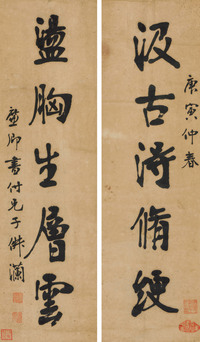 庚寅仲春
汲古得脩綆
盪胸生層雲
書付兄子瀾